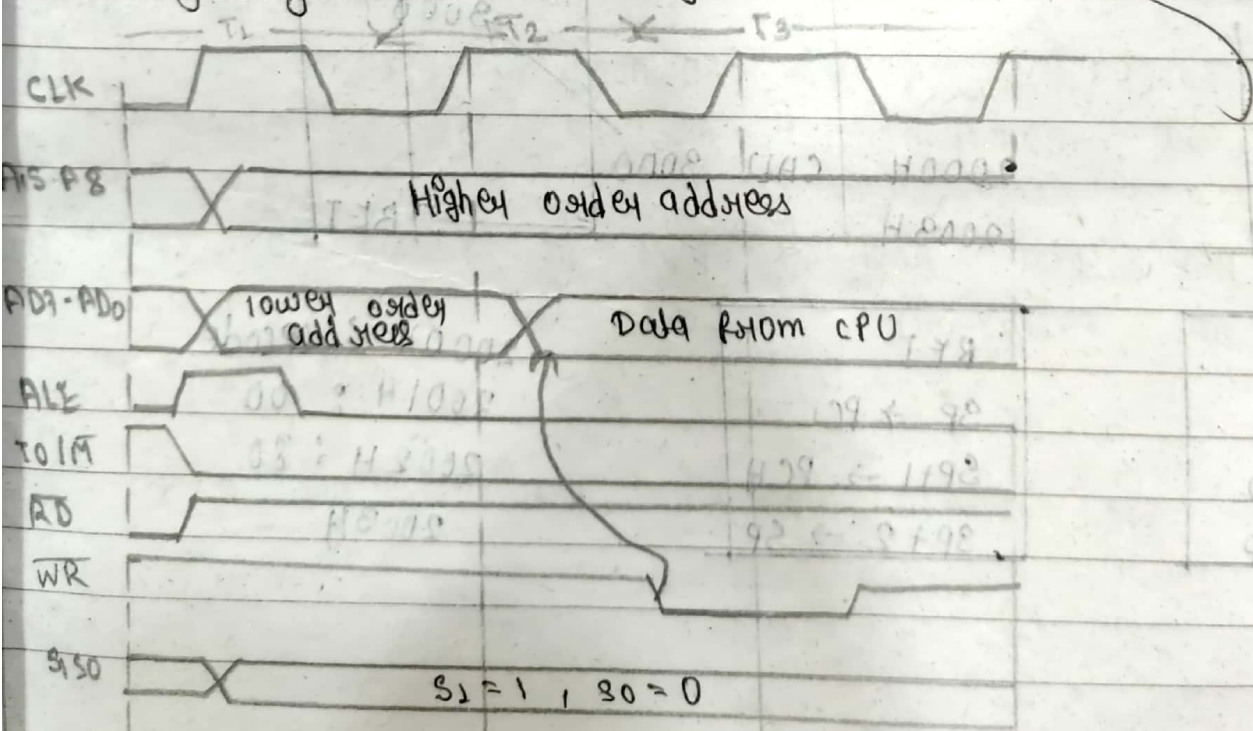 T1 T2 T3
CLK
A15-A8 Higher order address
AD7-AD0 lower order
address Data from CPU
ALE
IO/M̅
R̅D̅
W̅R̅
S1S0 S1 = 1 , S0 = 0